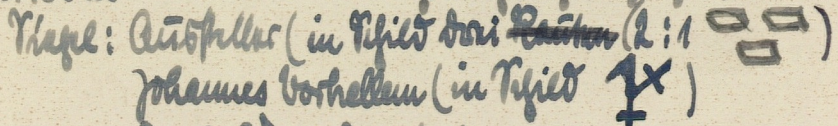 Siegel: Aussteller (in Schild drei Rauten (2:1 )
Johannes Vorhellem (in Schild )